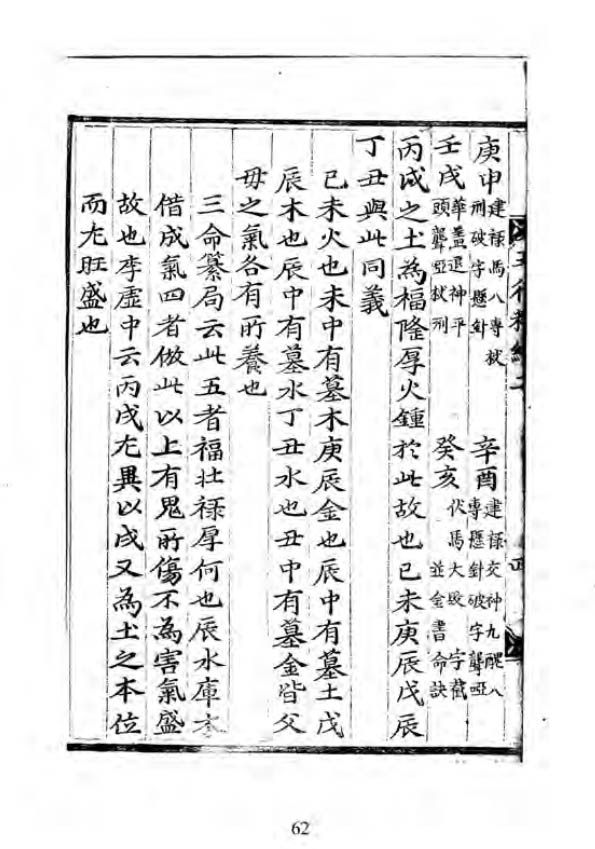 庚申 建祿馬八專杖刑破字懸針 辛酉 建祿交神九醜八專懸針破字聾啞
壬戌 華蓋退神平頭聾啞杖刑 癸亥 伏馬大敗字截並金書命訣
丙戌之土為福隆厚火鍾於此故也己未庚辰戊辰
丁丑與此同義
己未火也未中有墓木庚辰金也辰中有墓土戊
辰木也辰中有墓水丁丑水也丑中有墓金皆父
母之氣各有所養也
三命纂局云此五者福壯祿厚何也辰水庫
借成氣四者倣此以上有鬼所傷不為害氣盛
故也李虛中云丙戌尤異以戌又為土之本位
而尤旺盛也
62